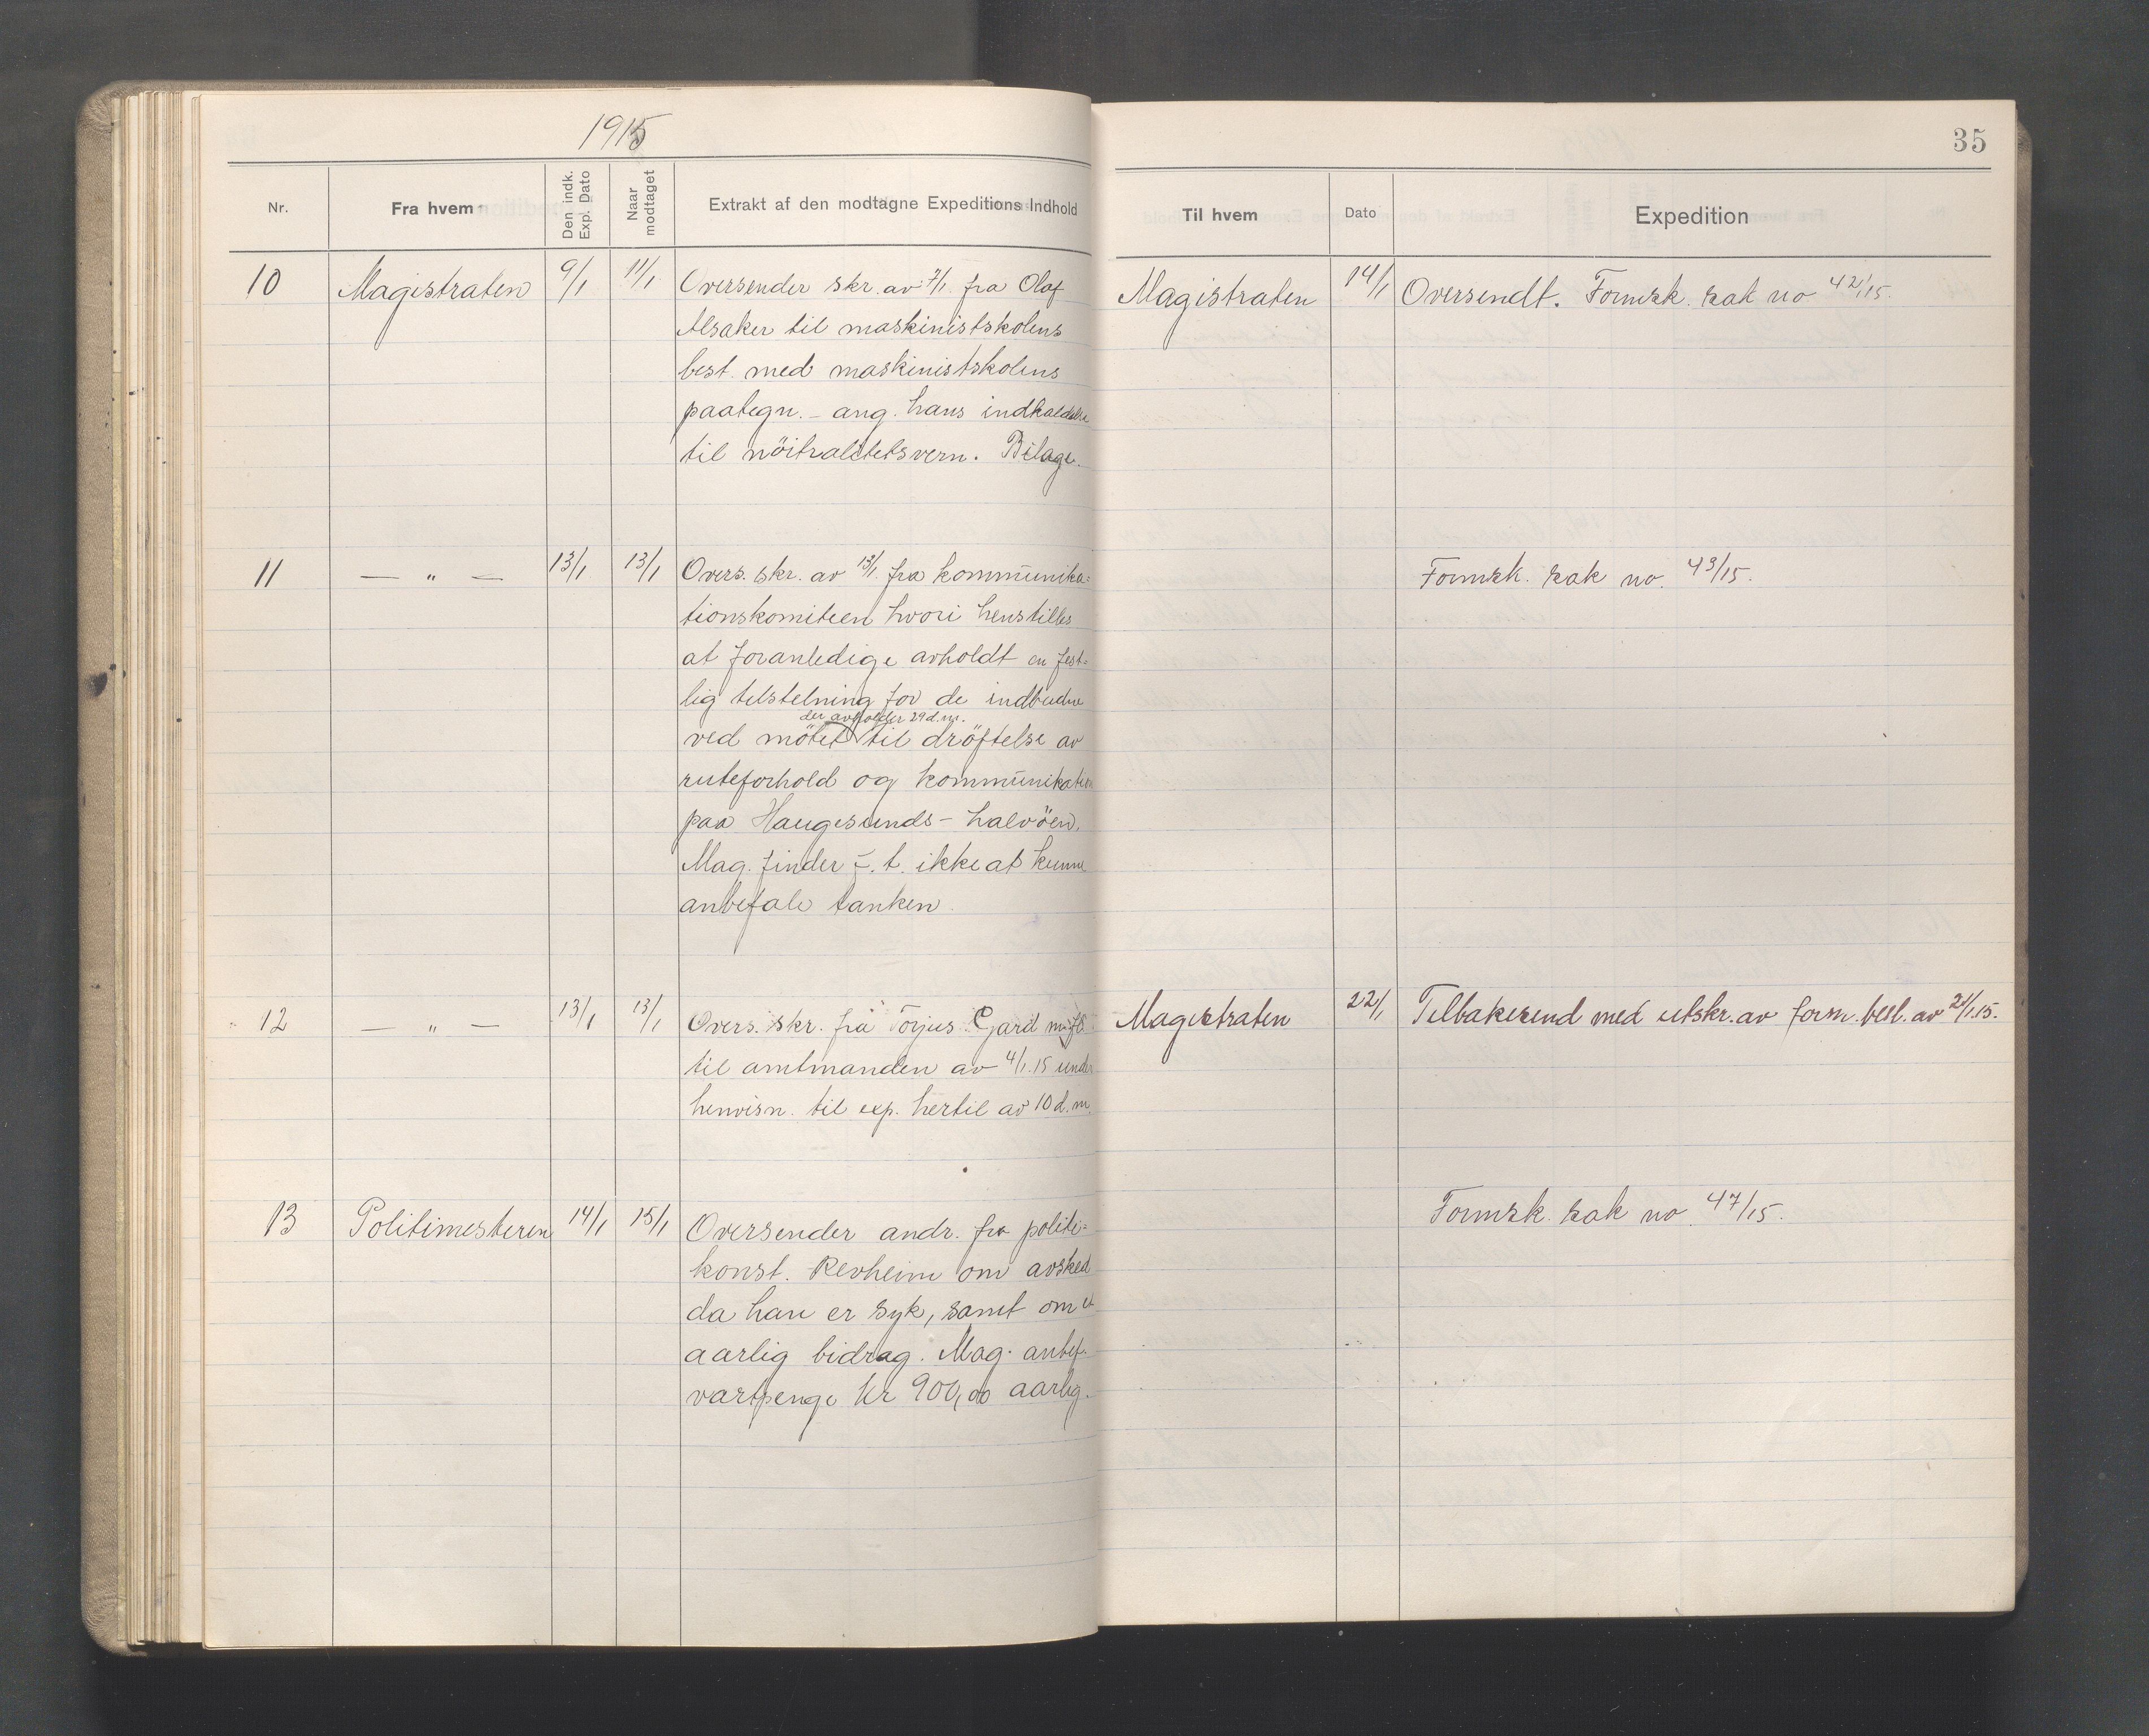 1915
Nr.
Fra hvem
Den indk. Exp. Dato
Naar modtaget
Extrakt af den modtagne Expeditions Indhold
10 Magistraten 9/1 11/1 Oversender skr. av 7/1. fra Olaf
Alsaker til maskinistskolens
best. med maskinistskolens
paategn. - ang. hans indkaldelse
til nöitralitetsvern. Bilage.
11 — " — 13/1 13/1 Overs. skr. av 13/1. fra kommunika=
tionskomiteen hvori henstilles
at foranledige avholdt en fest=
lig tilstelning for de indbudne
der avholdes 29 d.m.
ved mötet til dröftelse av
ruteforhold og kommunikation
paa Haugesunds-halvöen.
Mag. finder f. t. ikke at kunne
anbefale tanken.
12 — " — 13/1 13/1 Overs. skr. fra Torjus Gard m. fl.
til amtmanden av 4/1.15 under
henvisn. til exp. hertil av 10 d.m.
13 Politimesteren 14/1 15/1 Oversender andr. fra politi=
konst. Revheim om avsked
da han er syk, samt om et
aarlig bidrag. Mag. anbef.
vartpenge kr 900,00 aarlig.
35
Til hvem
Dato
Expedition
Magistraten 14/1 Oversendt. Formsk. sak no 42/15.
Formsk. sak no. 43/15.
Magistraten 22/1 Tilbakesend med utskr. av form. besl. av 21/1.15.
Formsk. sak no. 47/15.